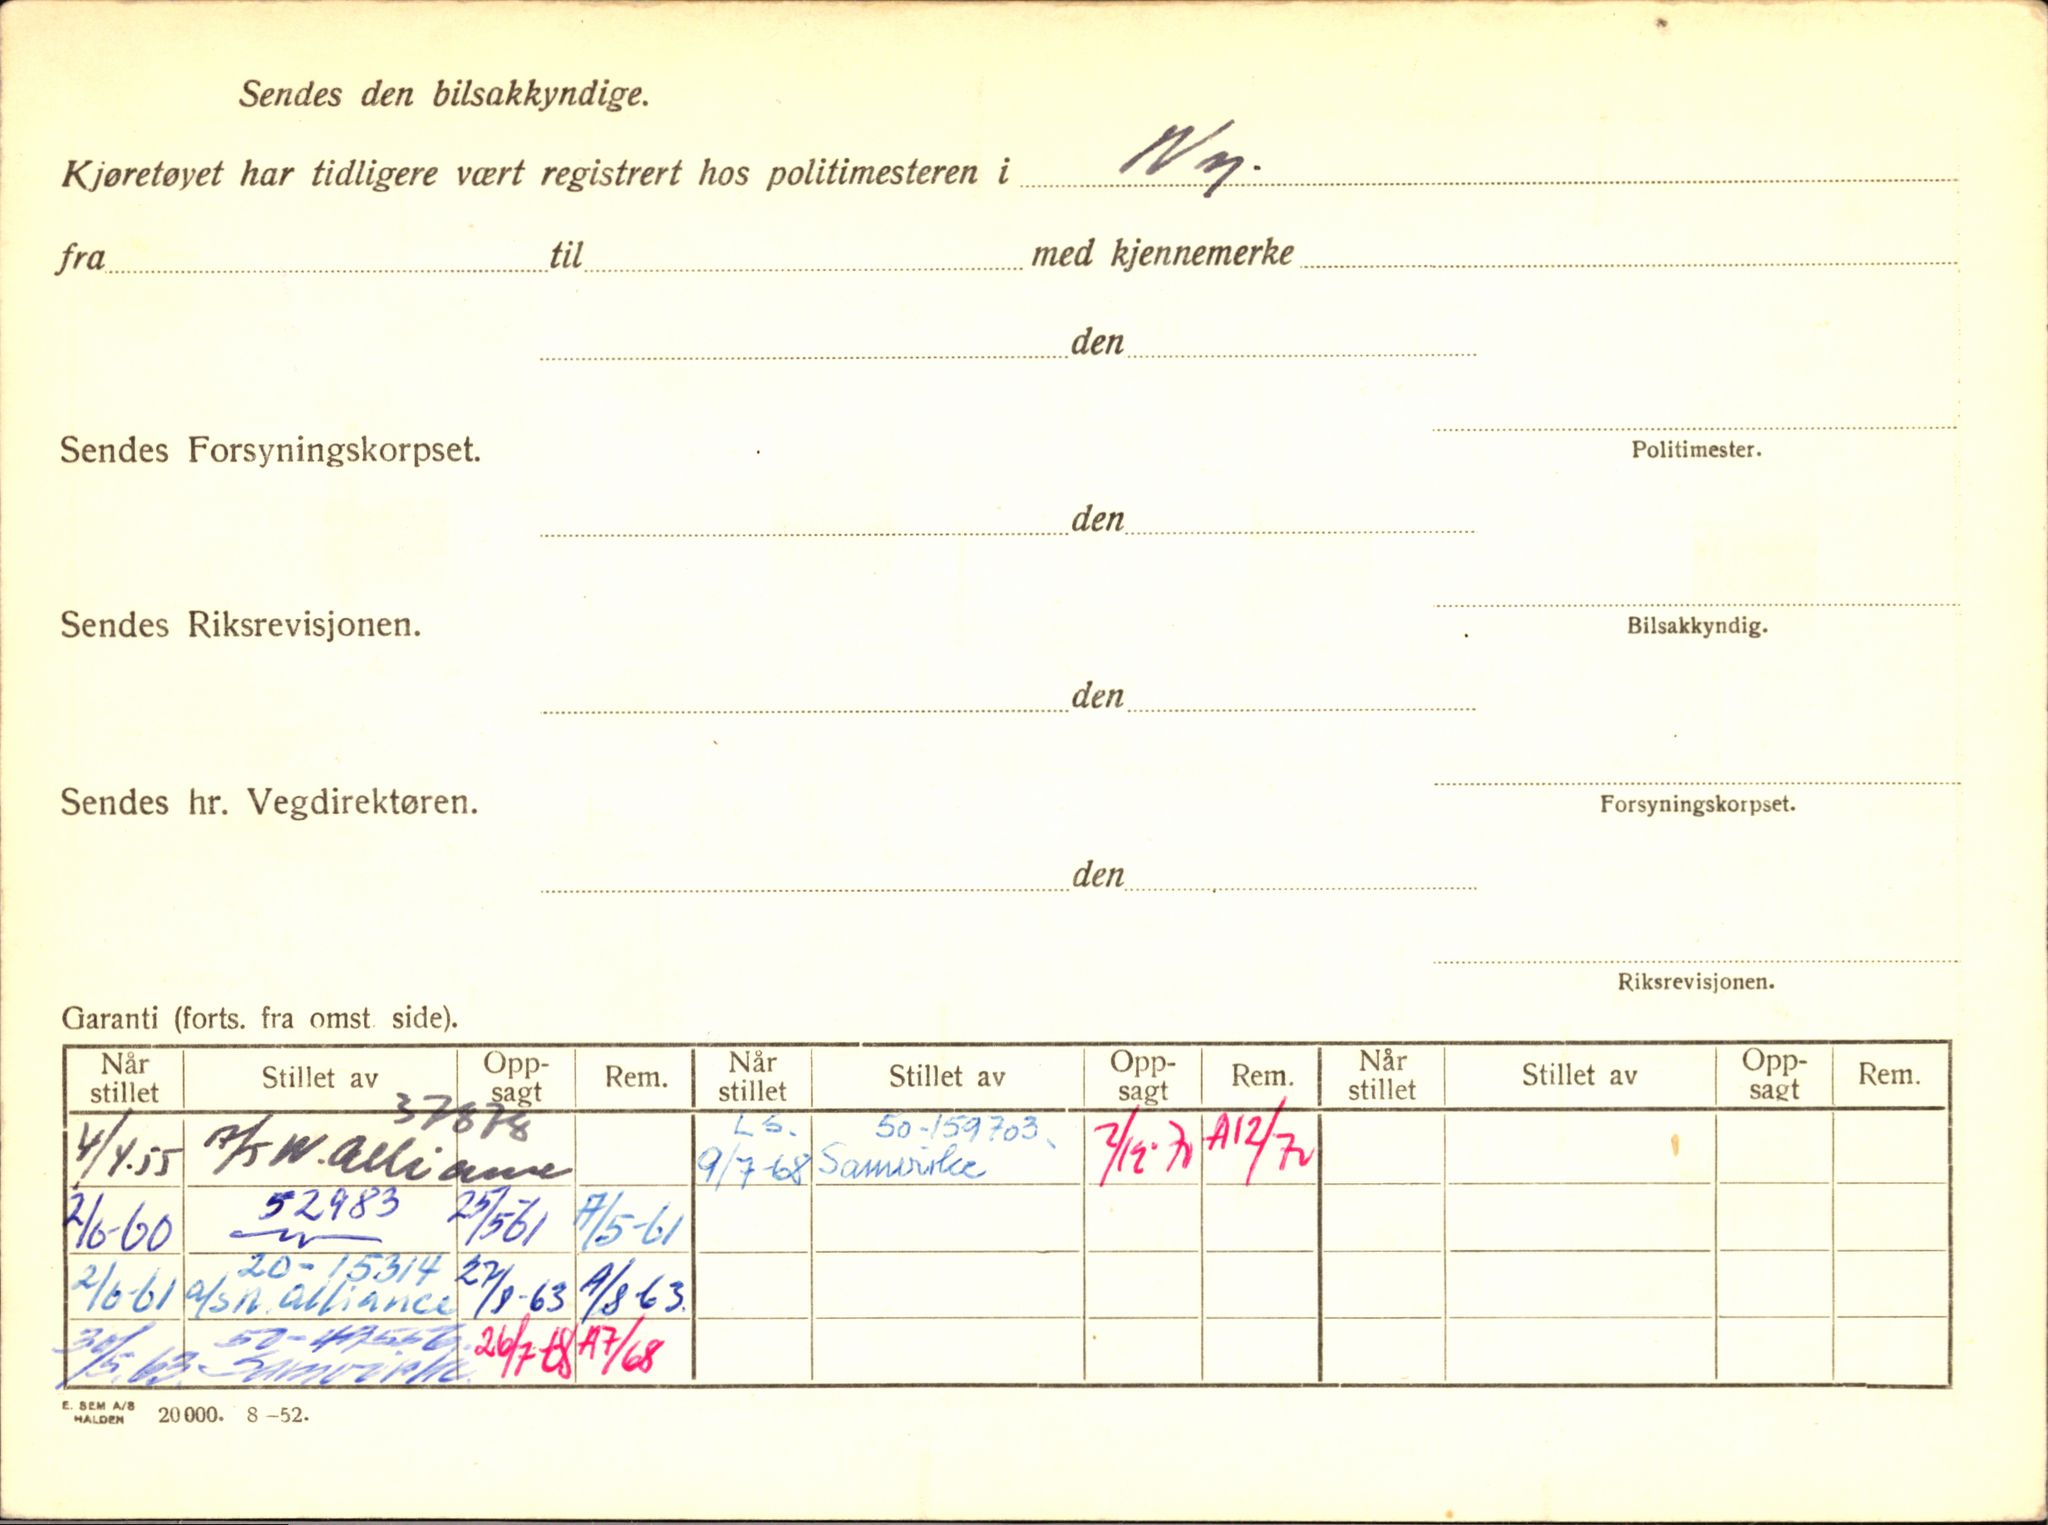 Sendes den bilsakkyndige.
Kjøretøyet har tidligere vært registrert hos politimesteren i Ny.
fra til med kjennemerke
den
Politimester.
Sendes Forsyningskorpset.
den
Bilsakkyndig.
Sendes Riksrevisjonen.
den
Forsyningskorpset.
Sendes hr. Vegdirektøren.
den
Riksrevisjonen.
Garanti (forts. fra omst. side).
Når stillet Stillet av Opp-sagt Rem. Når stillet Stillet av Opp-sagt Rem. Når stillet Stillet av Opp-sagt Rem.
37878
4/4.55 A/S N. Alliance
L S. 50-159703.
9/7-68 Samvirke 7/12-70 A12/70
2/6-60 52983 25/5-61 A/5-61
20-15314
2/6-61 A/S N. Alliance 27/8-63 A/8-63.
50-47556
30/5.63. Samvirke. 26/7-68 A7/68
E. SEM A/S
HALDEN 20000. 8-52.